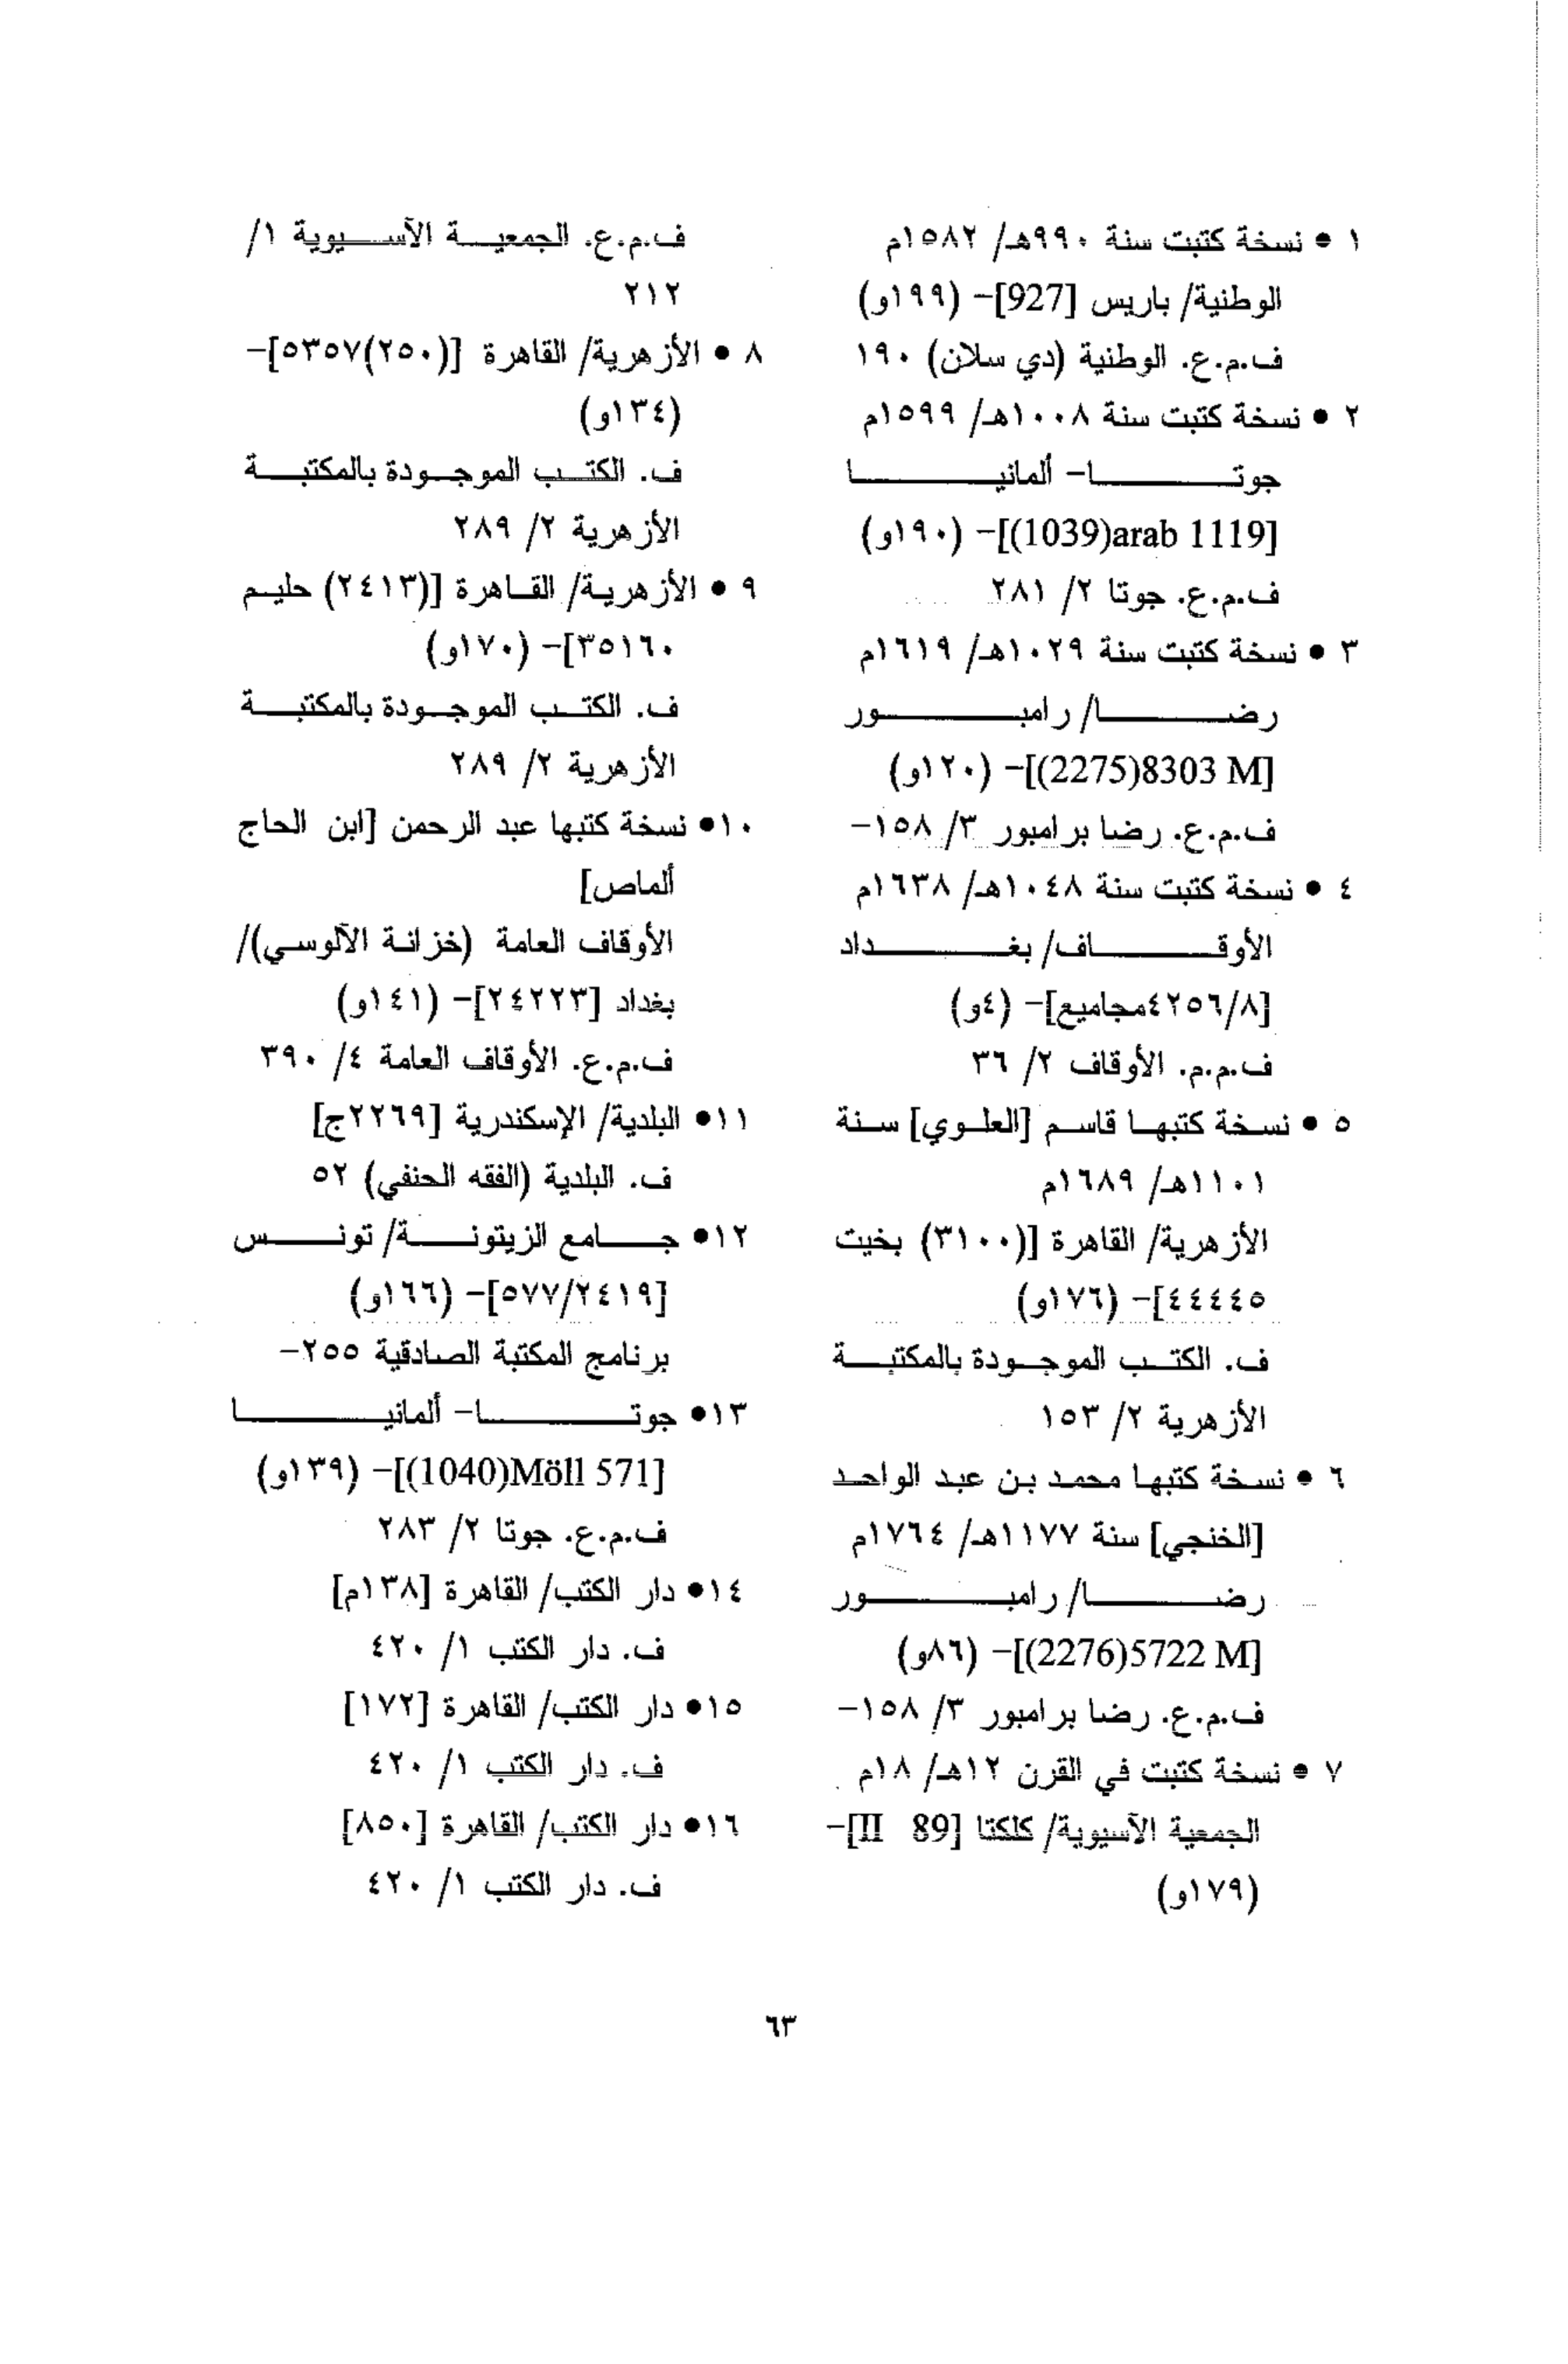 ١ • نسخة كتبت سنة ٩٩٠هـ/ ١٥٨٢م
الوطنية/ باريس [927]- (١٩٩و)
ف.م.ع. الوطنية (دي سلان) ١٩٠
٢ • نسخة كتبت سنة ١٠٠٨هـ/ ١٥٩٩م
جوتا- ألمانيا
[1119 arab(1039)]- (١٩٠و)
ف.م.ع. جوتا ٢/ ٢٨١
٣ • نسخة كتبت سنة ١٠٢٩هـ/ ١٦١٩م
رضا/ رامبور
[8303 M(2275)]- (١٢٠و)
ف.م.ع. رضا برامبور ٣/ ١٥٨-
٤ • نسخة كتبت سنة ١٠٤٨هـ/ ١٦٣٨م
الأوقاف/ بغداد
[٤٢٥٦/٨مجاميع]- (٤و)
ف.م.م. الأوقاف ٢/ ٣٦
٥ • نسخة كتبها قاسم [العلوي] سنة
١١٠١هـ/ ١٦٨٩م
الأزهرية/ القاهرة [(٣١٠٠) بخيت
٤٤٤٤٥]- (١٧٦و)
ف. الكتب الموجودة بالمكتبة
الأزهرية ٢/ ١٥٣
٦ • نسخة كتبها محمد بن عبد الواحد
[الخنجي] سنة ١١٧٧هـ/ ١٧٦٤م
رضا/ رامبور
[5722 M(2276)]- (٨٦و)
ف.م.ع. رضا برامبور ٣/ ١٥٨-
٧ • نسخة كتبت في القرن ١٢هـ/ ١٨م
الجمعية الآسيوية/ كلكتا [II 89]-
(١٧٩و)
ف.م.ع. الجمعية الآسيوية ١/
٢١٢
٨ • الأزهرية/ القاهرة [(٢٥٠)٥٣٥٧]-
(١٣٤و)
ف. الكتب الموجودة بالمكتبة
الأزهرية ٢/ ٢٨٩
٩ • الأزهرية/ القاهرة [(٢٤١٣) حليم
٣٥١٦٠]- (١٧٠و)
ف. الكتب الموجودة بالمكتبة
الأزهرية ٢/ ٢٨٩
١٠• نسخة كتبها عبد الرحمن [ابن الحاج
ألماص]
الأوقاف العامة (خزانة الآلوسي)/
بغداد [٢٤٢٢٣]- (١٤١و)
ف.م.ع. الأوقاف العامة ٤/ ٣٩٠
١١• البلدية/ الإسكندرية [٢٢٦٩ج]
ف. البلدية (الفقه الحنفي) ٥٢
١٢• جامع الزيتونة/ تونس
[٥٧٧/٢٤١٩]- (١٦٦و)
برنامج المكتبة الصادقية ٢٥٥-
١٣• جوتا- ألمانيا
[Möll 571(1040)]- (١٣٩و)
ف.م.ع. جوتا ٢/ ٢٨٣
١٤• دار الكتب/ القاهرة [١٣٨م]
ف. دار الكتب ١/ ٤٢٠
١٥• دار الكتب/ القاهرة [١٧٢]
ف. دار الكتب ١/ ٤٢٠
١٦• دار الكتب/ القاهرة [٨٥٠]
ف. دار الكتب ١/ ٤٢٠
٦٣